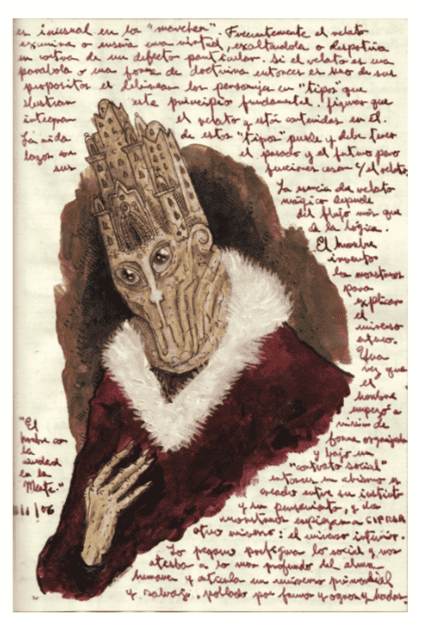 es inusual en la "marchen". Frecuentemente el relato
examina o enseña una virtud, exaltandola o despetiva
en contra de un defecto particular. Si el relato es una
parabola o una forma de doctrina entonces es uno de sus
propositos el delinear los personajes en "tipos" que
ilustran este principio fundamental. figuras que
integran el relato y están contenidas en él.
La vida de estos "tipos" puede y debe tener
lazos con el pasado y el futuro pero
sus funciones cesan el relato
La magico depende
del flujo más que
de la lógica.
El hombre
inventó
los monstruos
para
explicar
el
universo
Una
vez que
el
hombre
empezó a
vivir de
forma organizada
y bajo un
"contrato social"
entonces un abismo es
creado entre su instinto
y su pensamiento, y los
monstruos empiezan a
otro mismo: el universo interior.
Lo pagano prefigura lo social y nos
a lo mas profundo del alma
humana y articula un universo primordial
y salvaje, poblado por faunos y ogros y hadas.
"El
hombre con
la
ciudad
en la
Mente."
/06